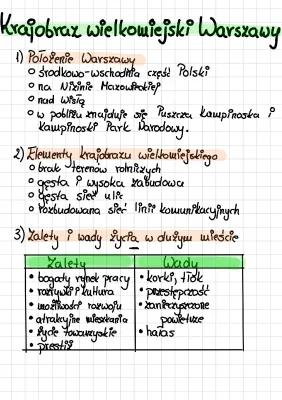 Krajobraz wielkomiejski Warszawy
1) Położenie Warszawy
środkowo-wschodnia część Polski
na Nizinie Mazowieckiej
nad Wisłą
w pobliżu znajduje się Puszcza Kampinoska i
Kampinoski Park Narodowy.
2) Elementy krajobrazu wielkomiejskiego
brak terenów rolniczych
gęsta i wysoka zabudowa
gęsta sieć ulic
rozbudowana sieć linii komunikacyjnych
3) Zalety i wady życia w dużym mieście
Zalety Wady
• bogaty rynek pracy • korki, tłok
• rozrywki i kultura • przestępczość
• możliwości rozwoju • zanieczyszczone
• atrakcyjne mieszkania powietrze
• życie towarzyskie • hałas
• prestiż